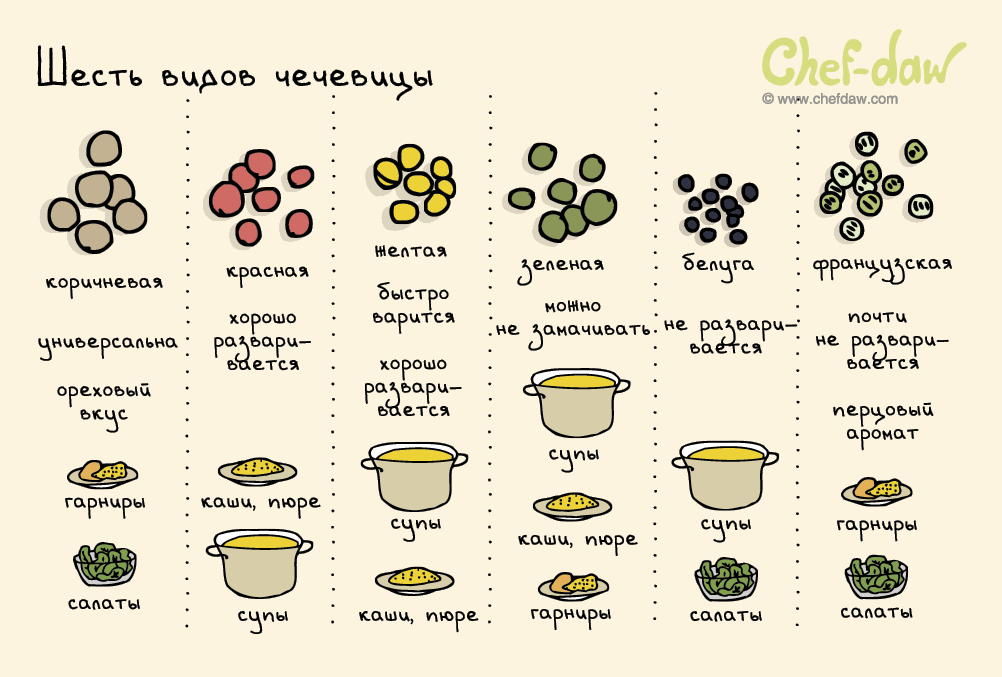 Шесть видов чечевицы
Chef-daw
© www.chefdaw.com
коричневая
универсальна
ореховый
вкус
гарниры
салаты
красная
хорошо
развари-
вается
каши, пюре
супы
желтая
быстро
варится
хорошо
развари-
вается
супы
каши, пюре
зеленая
можно
не замачивать
супы
каши, пюре
гарниры
белуга
не развари-
вается
супы
салаты
французская
почти
не развари-
вается
перцовый
аромат
гарниры
салаты